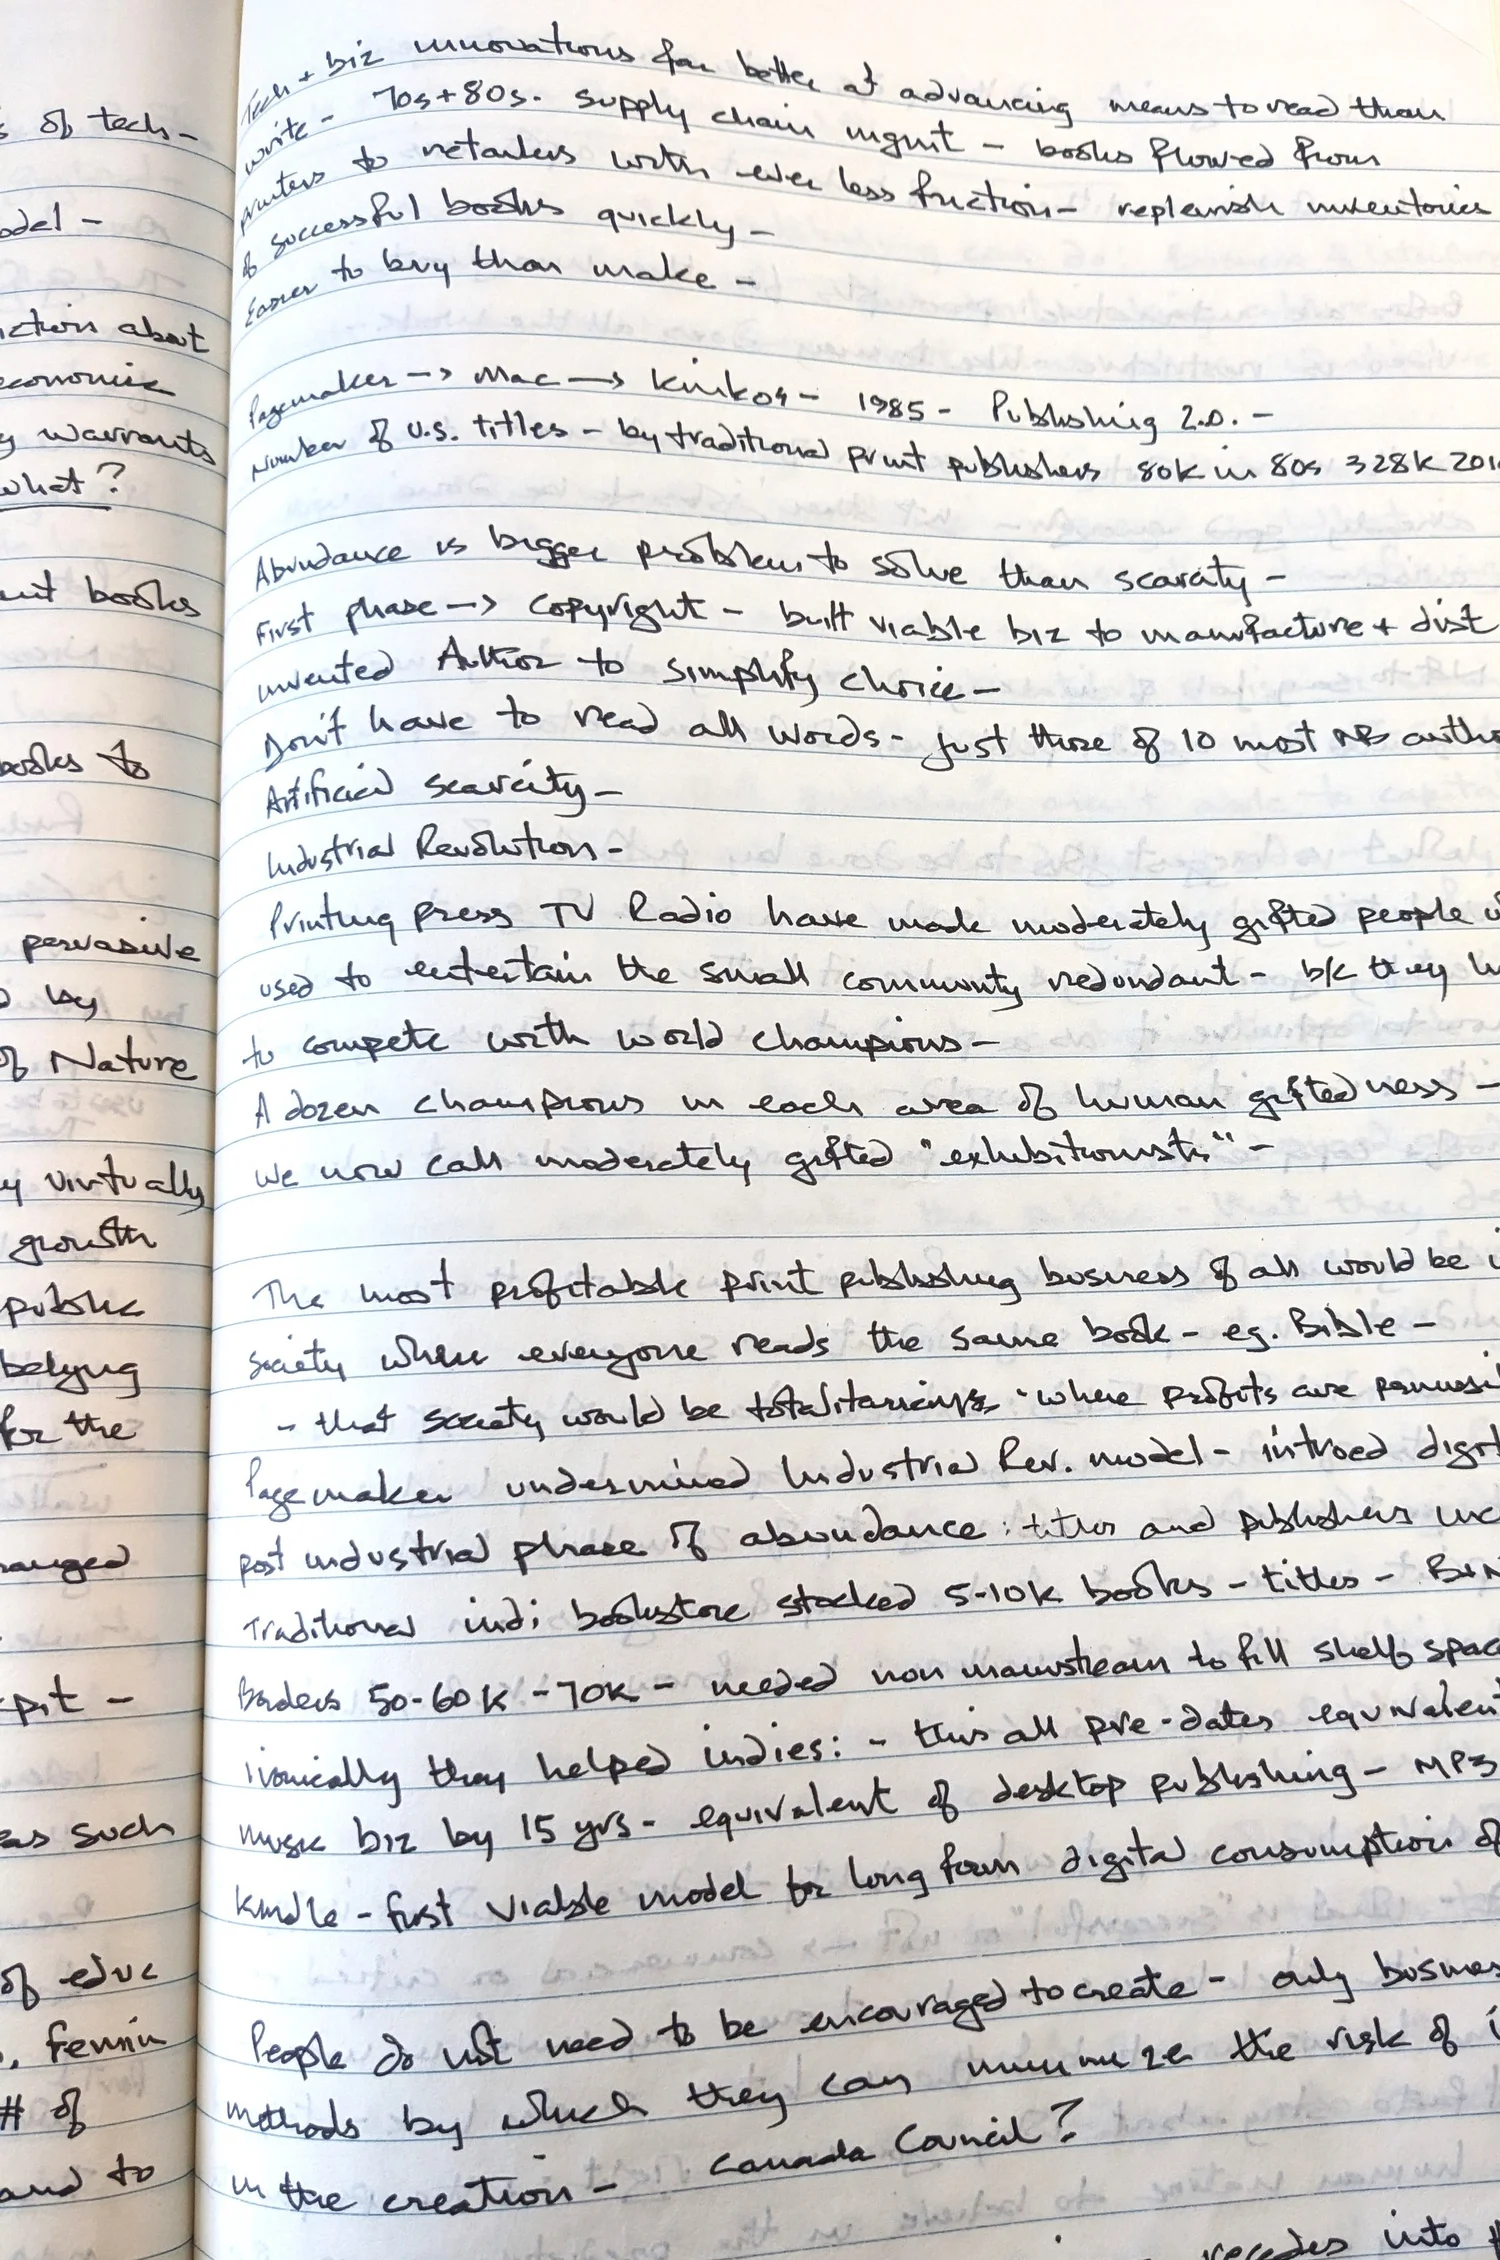 s of tech -
odel -
ction about
economic
y warrants
what?
books
books to
pervasive
by
of Nature
y virtually
growth
public
belying
for the
anged
pit -
as such
of educ
femin
# of
and to
Tech + biz innovations far better at advancing means to read than
write - 70s + 80s. supply chain mgmt - books flowed from
printers to retailers with ever less friction - replenish inventories
of successful books quickly -
Easier to buy than make -
Pagemaker -> Mac -> Kinkos - 1985 - Publishing 2.0. -
Number of U.S. titles - by traditional print publishers 80K in 80s 328K 201
Abundance is bigger problem to solve than scarcity -
First phase -> copyright - built viable biz to manufacture + dist
invented Author to simplify choice -
Don't have to read all words - just those of 10 most NB autho
Artificial scarcity -
Industrial Revolution -
Printing press TV Radio have made moderately gifted people
used to entertain the small community redundant - b/c they h
to compete with world champions -
A dozen champions in each area of human giftedness -
we now call moderately gifted "exhibitionists" -
The most profitable print publishing business of all would be i
society where everyone reads the same book - eg. Bible -
- that society would be where profits are
Pagemaker undermined Industrial Rev. model - introed digit
post industrial phase of abundance: titles and publishers inc
Traditional indi bookstore stocked 5-10K books - titles - B+N
Borders 50-60K - 70K - needed non mainstream to fill shelf spac
ironically they helped indies: - this all pre-dates equivalent
music biz by 15 yrs - equivalent of desktop publishing - MP3
Kindle - first viable model for long form digital consumption of
People do not need to be encouraged to create - only busines
methods by which they can minimize the risk of i
in the creation - Canada Council?
recedes into #